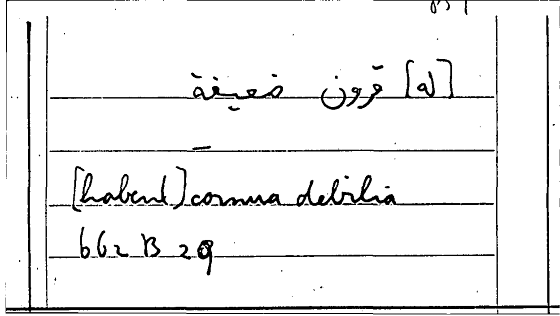 [له] قرون ضعيفة
–
[habent] cornua debilia
662 B 29